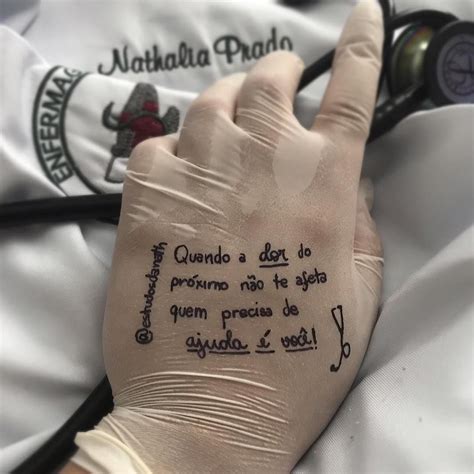 Nathalia Prado
ENFERMAG
@estudosdanath
Quando a dor do
próximo não te afeta
quem precisa de
ajuda é você!